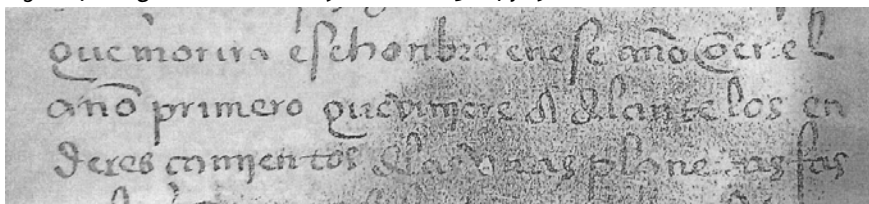 que morira esehonbre enese año o en el
año primero que viniere di adelante los en
derescamientos delas unas planetas fas